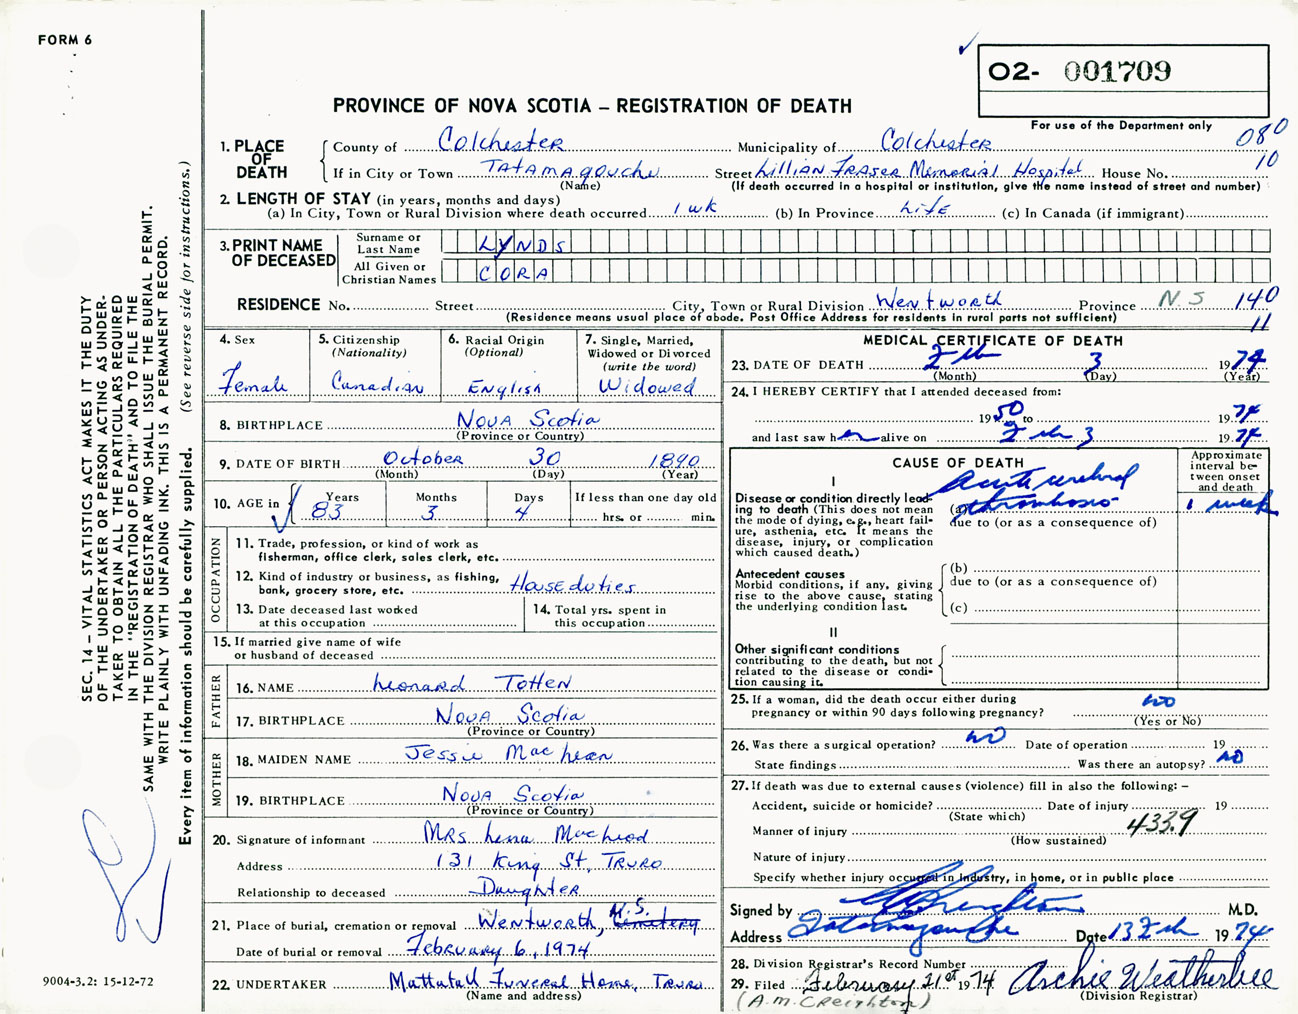 FORM 6
O2- 001709
PROVINCE OF NOVA SCOTIA – REGISTRATION OF DEATH
For use of the Department only
080
10
1. PLACE OF DEATH
County of Colchester Municipality of Colchester
If in City or Town Tatamagouche Street Lillian Fraser Memorial Hospital House No.
(Name) (If death occurred in a hospital or institution, give the name instead of street and number)
2. LENGTH OF STAY (in years, months and days)
(a) In City, Town or Rural Division where death occurred 1 wk (b) In Province Life (c) In Canada (if immigrant)
3. PRINT NAME OF DECEASED
Surname or Last Name LYNDS
All Given or Christian Names CORA
RESIDENCE No. Street City, Town or Rural Division Wentworth Province N.S 140
(Residence means usual place of abode. Post Office Address for residents in rural parts not sufficient) 11
4. Sex
Female
5. Citizenship (Nationality)
Canadian
6. Racial Origin (Optional)
English
7. Single, Married, Widowed or Divorced (write the word)
Widowed
8. BIRTHPLACE Nova Scotia
(Province or Country)
9. DATE OF BIRTH October 30 1890
(Month) (Day) (Year)
10. AGE in Years Months Days If less than one day old
83 3 4 hrs. or min.
OCCUPATION
11. Trade, profession, or kind of work as fisherman, office clerk, sales clerk, etc.
12. Kind of industry or business, as fishing, bank, grocery store, etc. House duties
13. Date deceased last worked at this occupation
14. Total yrs. spent in this occupation
15. If married give name of wife or husband of deceased
FATHER
16. NAME Leonard Totten
17. BIRTHPLACE Nova Scotia
(Province or Country)
MOTHER
18. MAIDEN NAME Jessie MacLean
19. BIRTHPLACE Nova Scotia
(Province or Country)
20. Signature of informant Mrs Lena MacLeod
Address 131 King St, Truro
Relationship to deceased Daughter
21. Place of burial, cremation or removal Wentworth, N.S. Cemetery
Date of burial or removal February 6, 1974
22. UNDERTAKER Mattatall Funeral Home, Truro
(Name and address)
MEDICAL CERTIFICATE OF DEATH
23. DATE OF DEATH Feb 3 1974
(Month) (Day) (Year)
24. I HEREBY CERTIFY that I attended deceased from:
1950 to 1974
and last saw her alive on Feb 3 1974
CAUSE OF DEATH
Approximate interval between onset and death
I
Disease or condition directly leading to death (This does not mean the mode of dying, e.g., heart failure, asthenia, etc. It means the disease, injury, or complication which caused death.)
(a) Acute cerebral thrombosis 1 week
due to (or as a consequence of)
Antecedent causes
Morbid conditions, if any, giving rise to the above cause, stating the underlying condition last.
(b)
due to (or as a consequence of)
(c)
II
Other significant conditions
contributing to the death, but not related to the disease or condition causing it.
25. If a woman, did the death occur either during pregnancy or within 90 days following pregnancy? No
(Yes or No)
26. Was there a surgical operation? No Date of operation 19
State findings Was there an autopsy? No
27. If death was due to external causes (violence) fill in also the following: –
Accident, suicide or homicide? Date of injury 19
(State which)
Manner of injury 433.9
(How sustained)
Nature of injury
Specify whether injury occurred in Industry, in home, or in public place
Signed by M.D.
Address Tatamagouche Date 13 Feb 1974
28. Division Registrar's Record Number
29. Filed February 21st 1974 Archie Weatherbee
(A.M. Creighton) (Division Registrar)
SEC. 14 – VITAL STATISTICS ACT MAKES IT THE DUTY
OF THE UNDERTAKER OR PERSON ACTING AS UNDER-
TAKER TO OBTAIN ALL THE PARTICULARS REQUIRED
IN THE "REGISTRATION OF DEATH" AND TO FILE THE
SAME WITH THE DIVISION REGISTRAR WHO SHALL ISSUE THE BURIAL PERMIT.
WRITE PLAINLY WITH UNFADING INK. THIS IS A PERMANENT RECORD.
Every item of information should be carefully supplied. (See reverse side for instructions.)
9004-3.2: 15-12-72